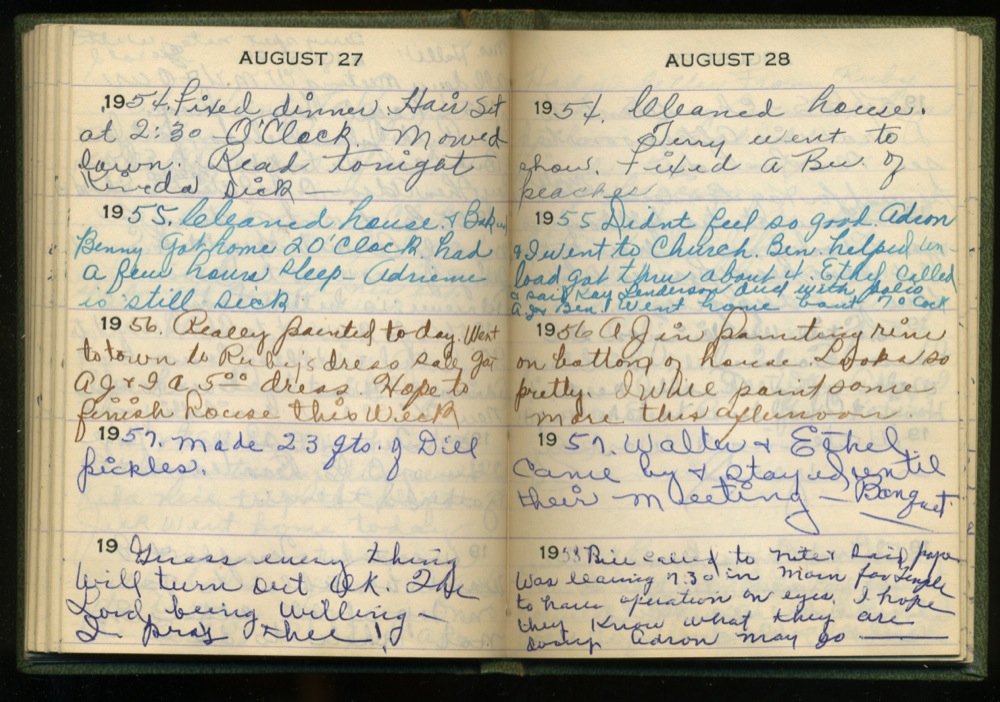 AUGUST 27
1954. Fixed dinner. Hair Set
at 2:30 O'Clock. Mowed
lawn. Read tonight
Kinda Sick —
1955. Cleaned house. & Baked
Benny Got home 2 O'Clock. had
a few hours sleep - Adrienne
is still sick
1956. Really painted to day. Went
to town to Ruby's dress sale got
A J & I A 5.00 dress. Hope to
finish house this week
1957. Made 23 qts. of Dill
pickles.
19 Guess every thing
will turn out O.K. The
Lord, being willing —
I pray thee!
AUGUST 28
1954. Cleaned house.
Terry went to
show. Fixed A Bu. of
peaches
1955 Didnt feel so good. Adron
& I went to Church. Ben. helped un-
load got thru about 4. Ethel called
& said Kay Henderson died with polio
A J & Ben. went home bout 7 O'Cock
1956 A J in painting
on bottom of house Looks so
pretty. I will paint some
more this afternoon.
1957. Walter & Ethel
came by & stayed until
their Meeting — Banquet
1958 Bill called to nite & said papa
was leaving 7:30 in Morn for Temple
to have operation on eyes. I hope
they know what they are
doing Adron may go —